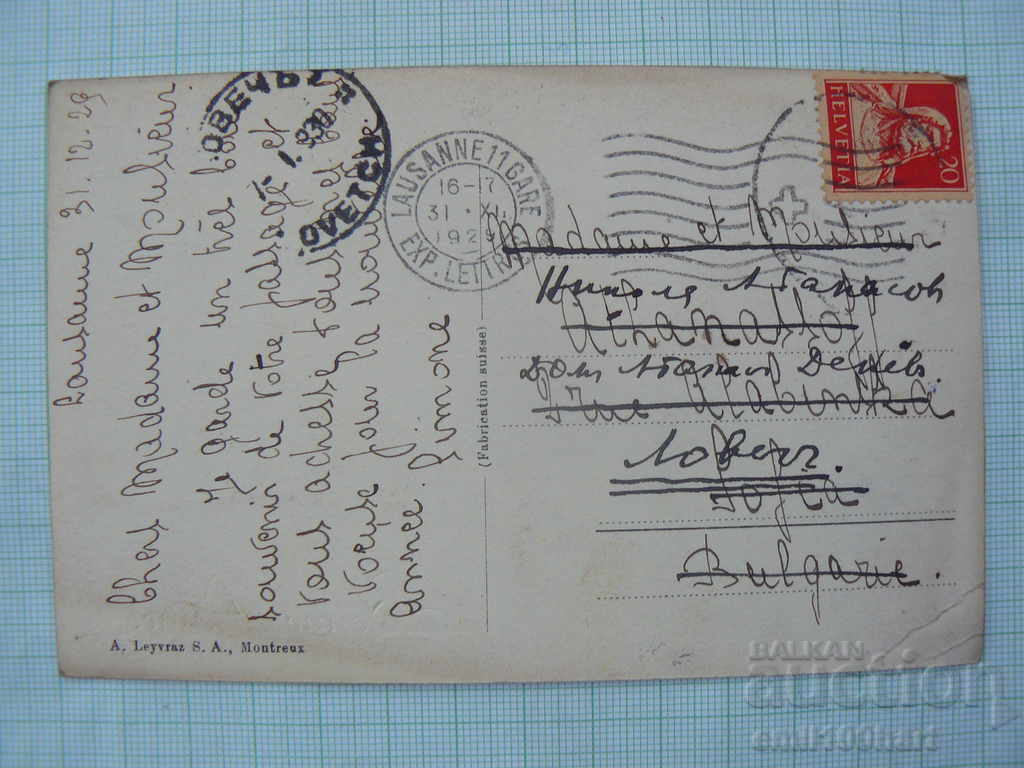 Lausanne 31.12.29
Chers Madame et Monsieur.
Je garde un très bon
souvenir de votre passage et
vous adresse tous mes bons
voeux pour la nouvelle
année. Simone
A. Leyvraz S. A., Montreux
(Fabrication suisse)
LOVETCH
LAUSANNE 11 GARE
16-17
31·XII
1929
EXP. LETTRES
HELVETIA
20
Madame et Monsieur
Никола Атанасов
Atanassoff
Дом Атанас
rue
Ловеч.
Sofia
Bulgarie.
BALKAN
auction
emil100hari